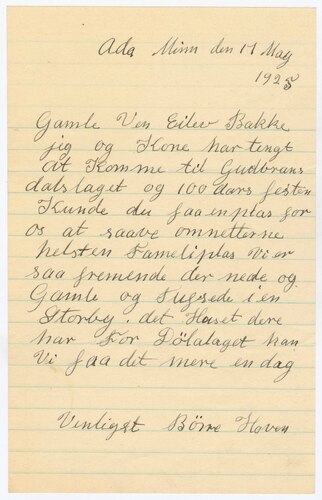 Ada Minn den 17 May
1925
Gamle Ven Eilev Bakke
jig og Kone har tengt
at Komme til Gudbrans
dalslaget og 100 aars festen
Kunde du faa en plas for
os at saave om netterne
helsten Fameliplas Vi er
saa fremende der nede og
Gamle og i en
Storby. det Huset dere
har For Dölalaget kan
Vi faa det mere en dag
Venligst Börre Hoven